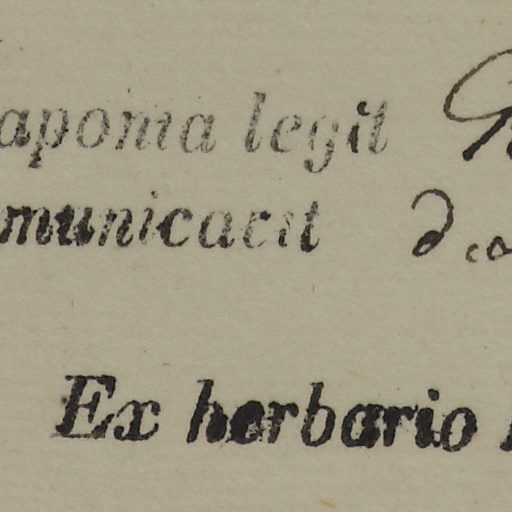 aponia legit
municavit
Ex herbario